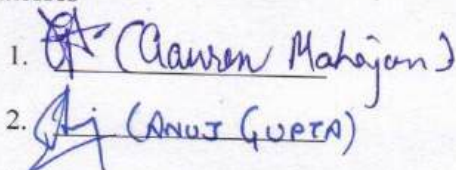 1. (Gaurav Mahajan)
2. (ANUJ GUPTA)